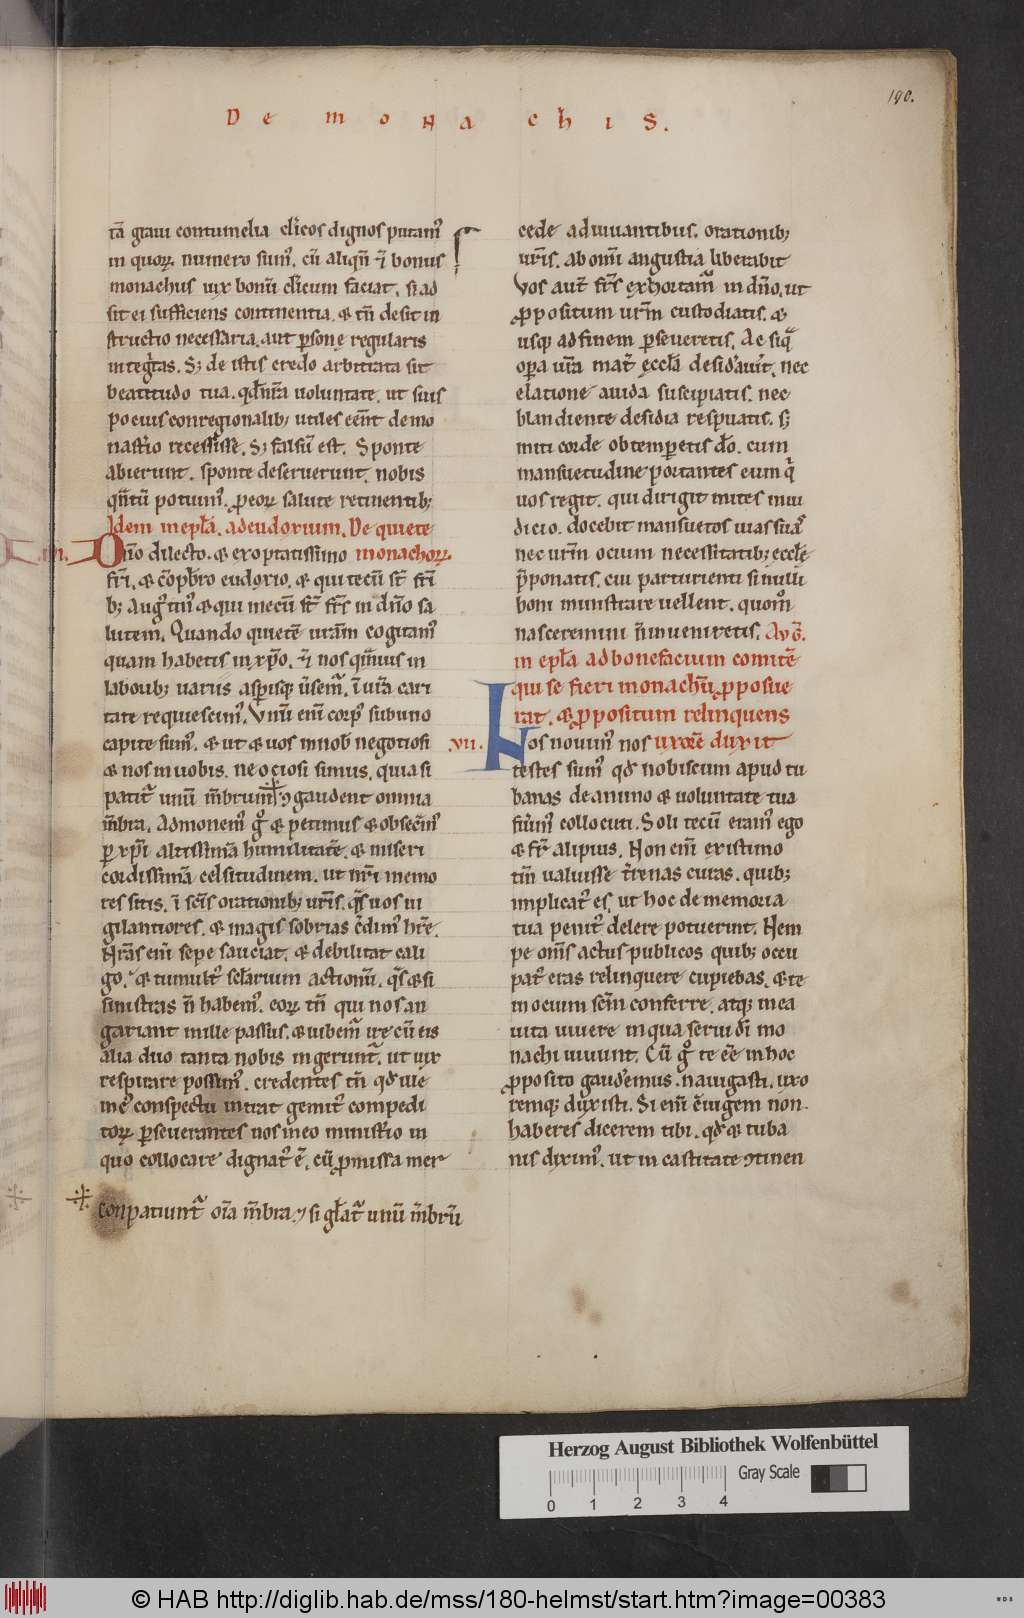 190.
De monachis.
tā graui contumelia cl'icos dignos putam᷒
in quoꝝ numero sum᷒. cū aliqn̄ ⁊̄ bonus
monachus uix bonū cl'icum faciat. si ad
sit ei sufficiens continentia. & tn̄ desit in
structio necessaria. aut ꝑsonę regularis
integ̓tas. Sꝫ de istis credo arbitrata sit
beatitudo tua. qđ nr̄a uoluntate. ut suis
po eius conregionalibꝫ utiles eēnt de mo
nast̓io recessissē. Sꝫ falsū est. Sponte
abierunt. sponte deseruerunt. nobis
qn̄tū potuim᷒. ꝓ eoꝝ salute retinentibꝫ
Idem in epl̄a. ad eudoxium. De quiete
iiii. Dn̄o dilecto. & exoptatissimo monachoꝝ.
fr̄i. & cōpb̄ro eudoxio. & qui tecū st̄ fr̄i
bꝫ Aug᷒tin᷒ & qui mecū st̄ fr̄s in dn̄o sa
lutem. Quando quietē ur̄am cogitam᷒
quam habetis in xp̄o. ⁊̄ nos quāuis in
laboribꝫ uariis asp̄isqꝫ uersem᷑. ī ur̄a cari
tate requiescim᷒. Vnū enī corp᷒ sub uno
capite sum᷒. & ut & uos in nob̄ negotiosi
& nos in uobis. ne ociosi simus. quia si
patit᷑ unū m̄brum ꝯgaudent omnia
m̄bra. Admonem᷒ gͦ & petimus & obsec̓m᷒
ꝑ xp̄i altissimā humilitatē. & miseri
cordissimā celsitudinem. ut nr̄i memo
res sitis. ī sc̄is orationibꝫ ur̄is. qͣs uos ui
gilantiores. & magis sobrias c̄dim᷒ hr̄e.
Nr̄as enī sepe sauciat. & debilitat cali
go. & tumult᷒ sc̄larium actionū. qͣs & si
sinistras n̄ habem᷒. eoꝝ tn̄ qui nos an
gariant mille passus. & iubem᷑ ire cū eis
alia duo tanta nobis ingerunt᷑. ut uix
respirare possim᷒. credentes tn̄ qđ ille
in c᷒ conspectu intrat gemit᷒ compedi
toꝝ ꝑseuerantes uos in eo minist̓io in
quo collocare dignat᷒ ē. cū ꝓmissa mer
conpatiunt᷑ oīa m̄bra. ⁊ si gl̄at᷑ unū m̄brū
cede adiuuantibus. orationibꝫ
ur̄is. ab omī angustia liberabit
Vos aut̄ fr̄s exhortam᷑ in dn̄o. ut
ꝓpositum ur̄m custodiatis. &
usqꝫ ad finem ꝑseueretis. Ac siqͣ
oꝑa ur̄a mat̓ ęccl̄a desid̓auit̓. nec
elatione auida suscipiatis. nec
blandiente desidia respuatis. sꝫ
miti corde obtemꝑetis dō. cum
mansuetudine portantes eum qͥ
uos regit. qui dirigit mites in iu
dicio. docebit mansuetos uias suas̄
nec ur̄m ocium necessitatibꝫ eccl̄ę
p̄ponatis. cui parturienti si nulli
boni ministrare uellent. quom̊
nasceremini n̄ inueniretis. Aug̓.
in epl̄a ad bonefacium comitē
qui se fieri monachū ꝓposue
rat. & ꝓpositum relinquens
.vii. Nos nouim᷒ nos uxorē duxit
testes sum᷒ qđ nobiscum apud tu
banas de animo & uoluntate tua
fuim᷒ collocuti. Soli tecū eram᷒ ego
& fr̄ alipius. Non enī existimo
tm̄ ualuisse t̓renas curas. quibꝫ
implicat᷒ es. ut hoc de memoria
tua penit᷒ delere potuerint. Nem
pe om̄s actus publicos quibꝫ occu
pat᷒ eras relinquere cupiebas. & te
in ocium sc̄m conferre. atqꝫ in ea
uita uiuere in qua serui dī mo
nachi uiuunt. Cū gͦ te eē in hoc
ꝓposito gaud̓emus. nauigasti. uxo
remqꝫ duxisti. Si enī ēiugem non
haberes dicerem tibi. qđ & tuba
nis dixim᷒. ut in castitate ꝯtinen
Herzog August Bibliothek Wolfenbüttel
Gray Scale
0 1 2 3 4
© HAB http://diglib.hab.de/mss/180-helmst/start.htm?image=00383